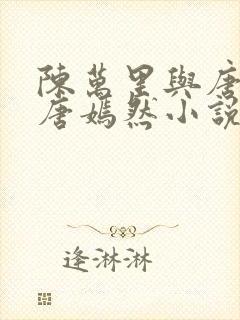 陳萬里與唐
唐嫣然小說
逢淋淋